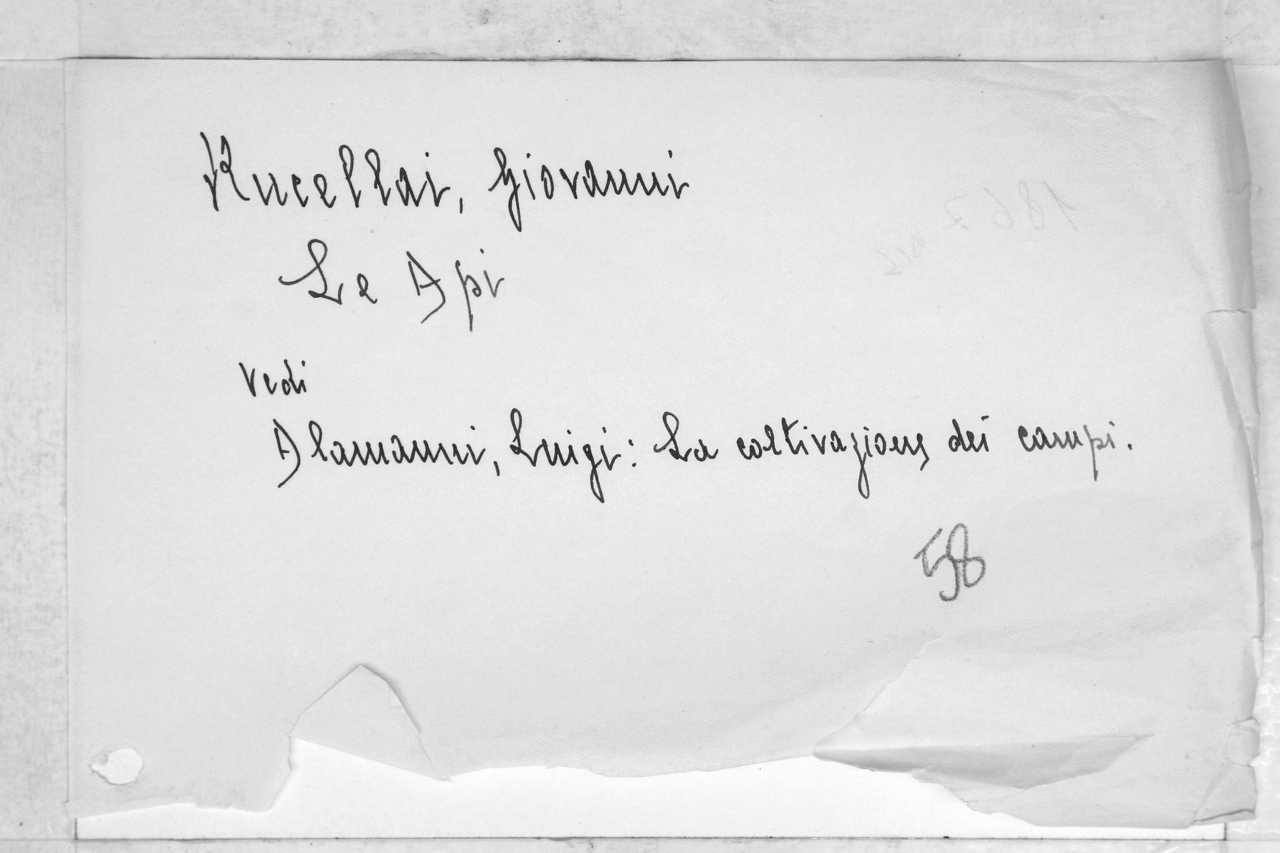 Rucellai, Giovanni
Le Api
vedi
Alamanni, Luigi: La coltivazione dei campi.
58